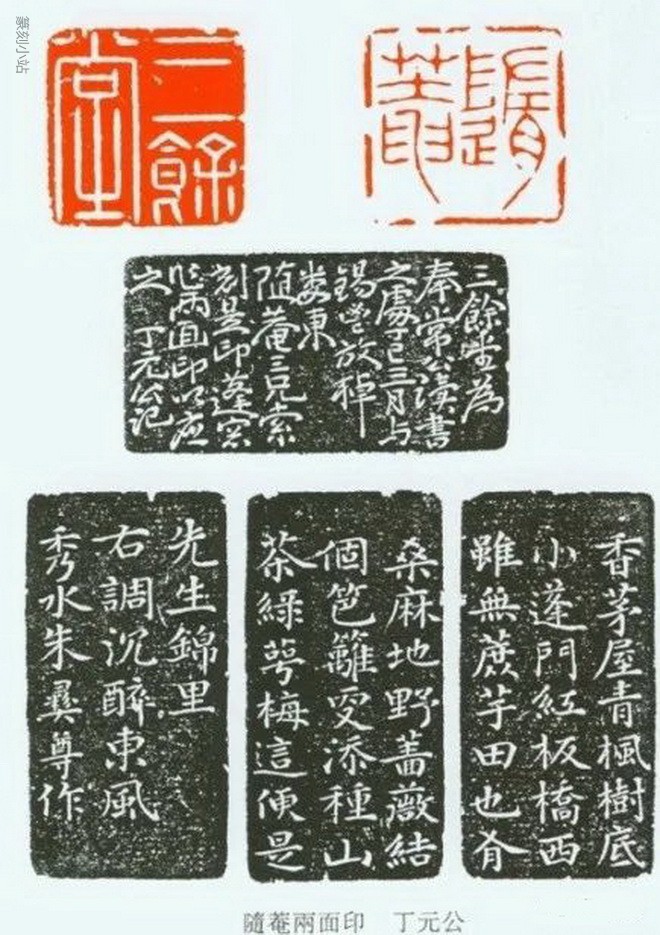 篆刻小站
三餘
堂
隨
菴
三餘堂為
奉常公讀書
之處丁巳三月与
錫鬯放棹
婁東
随菴三兄索
刻是印蓬窓
作兩面印以应
之 丁元公記
香茅屋青楓樹底
小蓬門紅板橋西
雖無蔗芋田也有
桑麻地野薔薇結
個笆籬更添種山
茶綠萼梅這便是
先生錦里
右調沉醉東風
秀水朱彝尊作
隨菴兩面印 丁元公